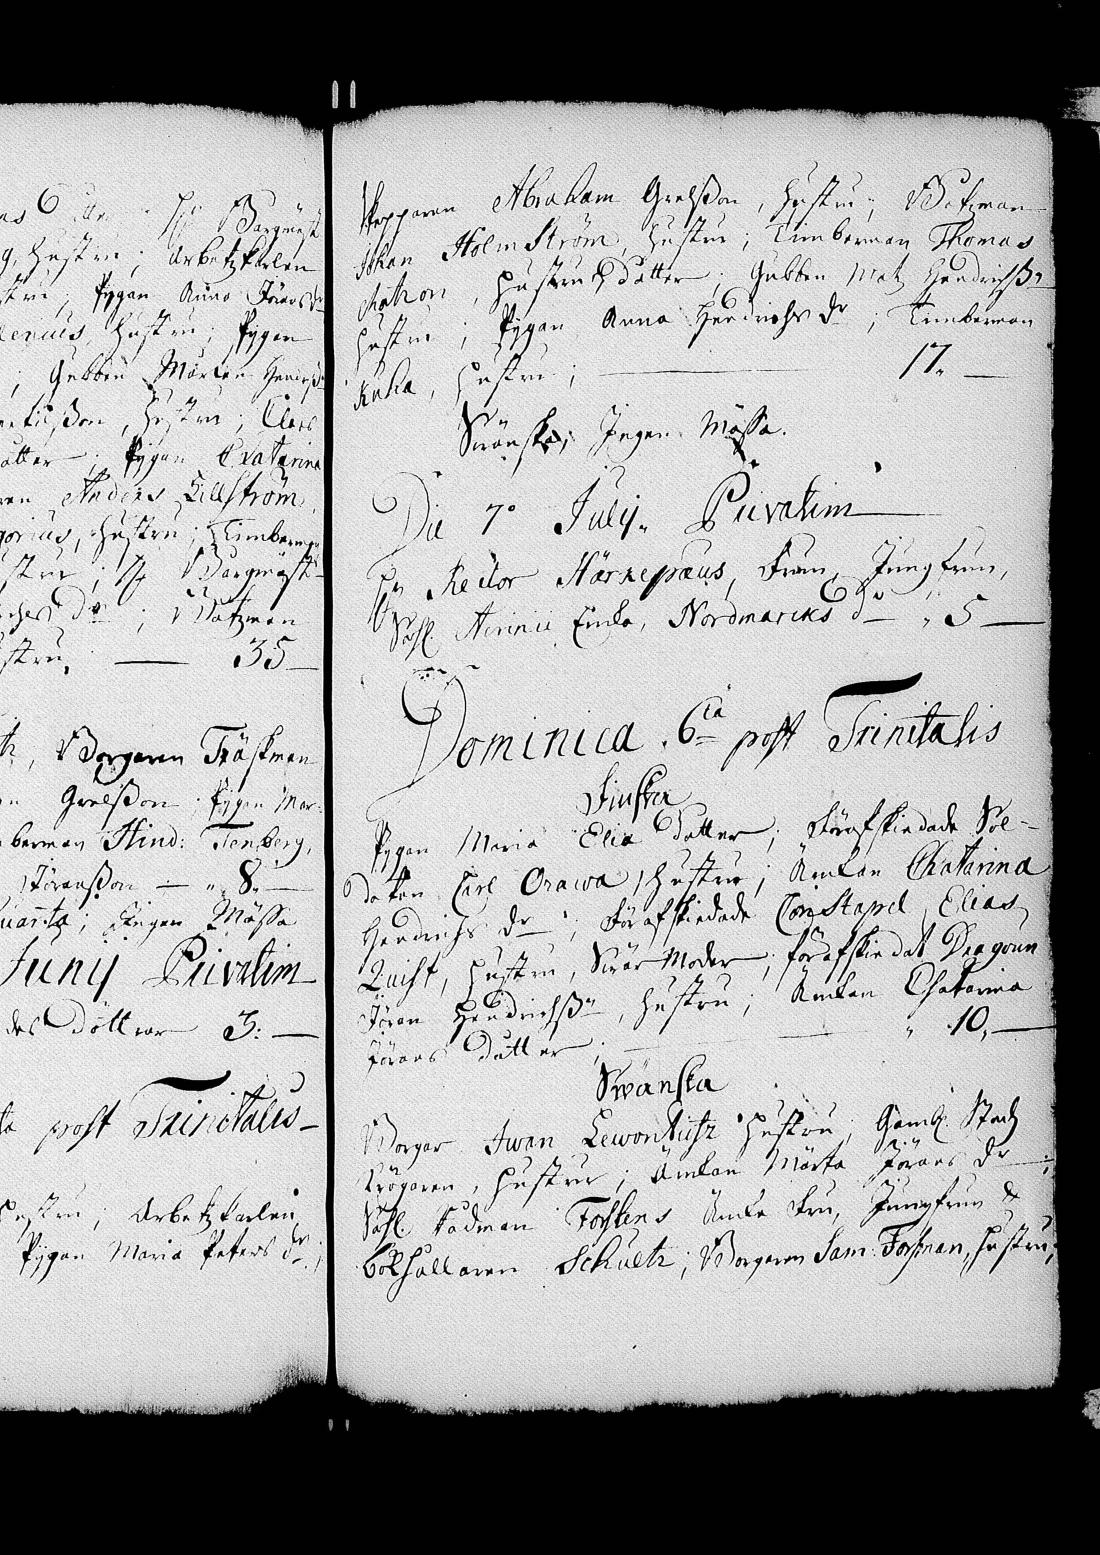 Hr Bargmäst
g, hustru; Arbetzkarlen
stru; Pygan Anna Jörans dr
lenius, hustru; Pygan
; Gubben Mårten Hendrß
hustru; Claes
atter; Pygan Chatarina
Anders Lillström,
gorius, hustru; Timberman
stru; Hr Bargmäst
dr; Båtzman
stru, — 35 —
Borgaren Träskman
Grelsßon; Pygan Mar:
berman Hind: Tenberg,
Jöranßon — „ 8. —
uarta; Ingen Mässa
Junij Privatim
des Döttrar 3: —
ta post Trinitatis
hustru; Arbetzkarlen
Pygan Maria Peters dr;
Skepparen Abraham Grelsßon, hustru; Båtzman
Johan Holmström, hustru; Timberman Thomas
hustru & dotter; Gubben Matz Hendrichßn
hustru; Pygan Anna Hendrichs dr; Timberman
Kuha, hustru; — 17. —
Swänska; Ingen Mässa.
Die 7° Julij. Privatim
Hr Rector Härkepæus, Frun, Jungfrun,
Sahl. Enka, Nordmarcks dr — „ 5 —
Dominica 6ta post Trinitatis
Finska
Pygan Maria Elia dotter; förafskiedade Sol-
daten Carl Orawa, hustru; Änkan Chatarina
Hendrichs dr; förafskiedade Constapel Elias
Quist, hustru, Swärmoder; förafskiedat Dragoun
Jöran Hendrichßn, hustru; Änkan Chatarina
Jörans dotter; — „ 10, —
Swänska
Borgar Iwan Lewontiusz hustru; Gaml. Stadz
Krögaren, hustru; Änkan Märta Jörans dr;
Sahl. Rådman Forstens Änke Fru, Jungfrun &
bokhållaren Schultz; Borgaren Sam: Forsman, hustru;